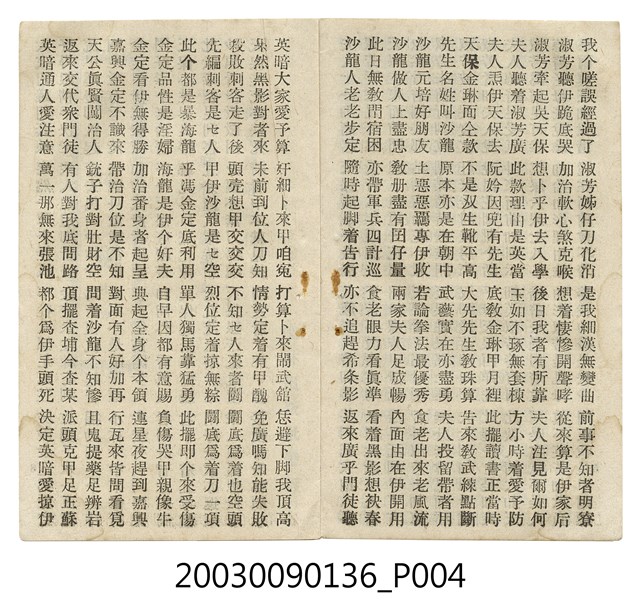 我个嗟誤經過了 淑芳姊仔刀化消 是我細漢無變曲 前事不知者明寮
淑芳聽伊跪底哭 加治軟心煞克喉 想着悽慘開聲哮 從來算是伊家后
淑芳牽起吳天保 想卜乎伊去入學 後日我者有所靠 夫人注見爾如何
夫人聽着淑芳廣 此款理由是英當 玉如不琢無套棟 方小時着愛予防
夫人𤆬伊天保去 阮妗因兜有先生 底教金琳甲月裡 此擺讀書正當時
天保金琳面仝款 不是双生靴平高 大先先生教珠算 告來教武練點斷
先生名姓叫沙龍 原本亦是在朝中 武藝實在亦盡勇 夫人投留帶者用
沙龍元培好朋友 土惡惡覇專伊收 若論拳法最優秀 食老出來老風流
沙龍做人上盡忠 教册盡有囝仔量 兩家夫人足放暢 內面由在伊開用
此日無教閂宿困 亦帶軍兵四計巡 食老眼力看眞準 看着黑影想袂春
沙龍人老老步定 隨時起脚着告行 亦不追趕希条影 返來廣乎門徒聽
英暗大家愛予算 奸細卜來甲咱寃 打算卜來閙武館 恁避下脚我頂高
果然黑影對者來 未前到位人刀知 情勢定着有甲醜 免廣嗎知能失敗
殺敗刺客走了後 頭壳想甲交交交 不知七人來者鬪 鬪底爲着也空頭
先編刺客是七人 甲伊沙龍是七空 烈位定着掠無粽 鬪底爲着刀一項
此个都是暴海龍 乎馮金定底利用 單人獨馬靠猛勇 此擺即个來受傷
金定品性是淫婦 海龍是伊个奸夫 自早因都有意賜 負傷哭甲親像牛
金定看伊無得勝 加治番身者起呈 典起全身个本領 連星夜趕到嘉興
嘉興金定不識來 帶治刀位是不知 對面有人好加再 行瓦來皆問看覓
天公眞賢鬮治人 銃子打對肚財空 問着沙龍不知慘 且鬼提藥足辨岩
返來交代衆門徒 有人對我底問路 頂擺查埔今查某 派頭克甲足正蘇
英暗通人愛注意 萬一那無來張池 都个爲伊手頭死 決定英暗愛掠伊
20030090136_P004